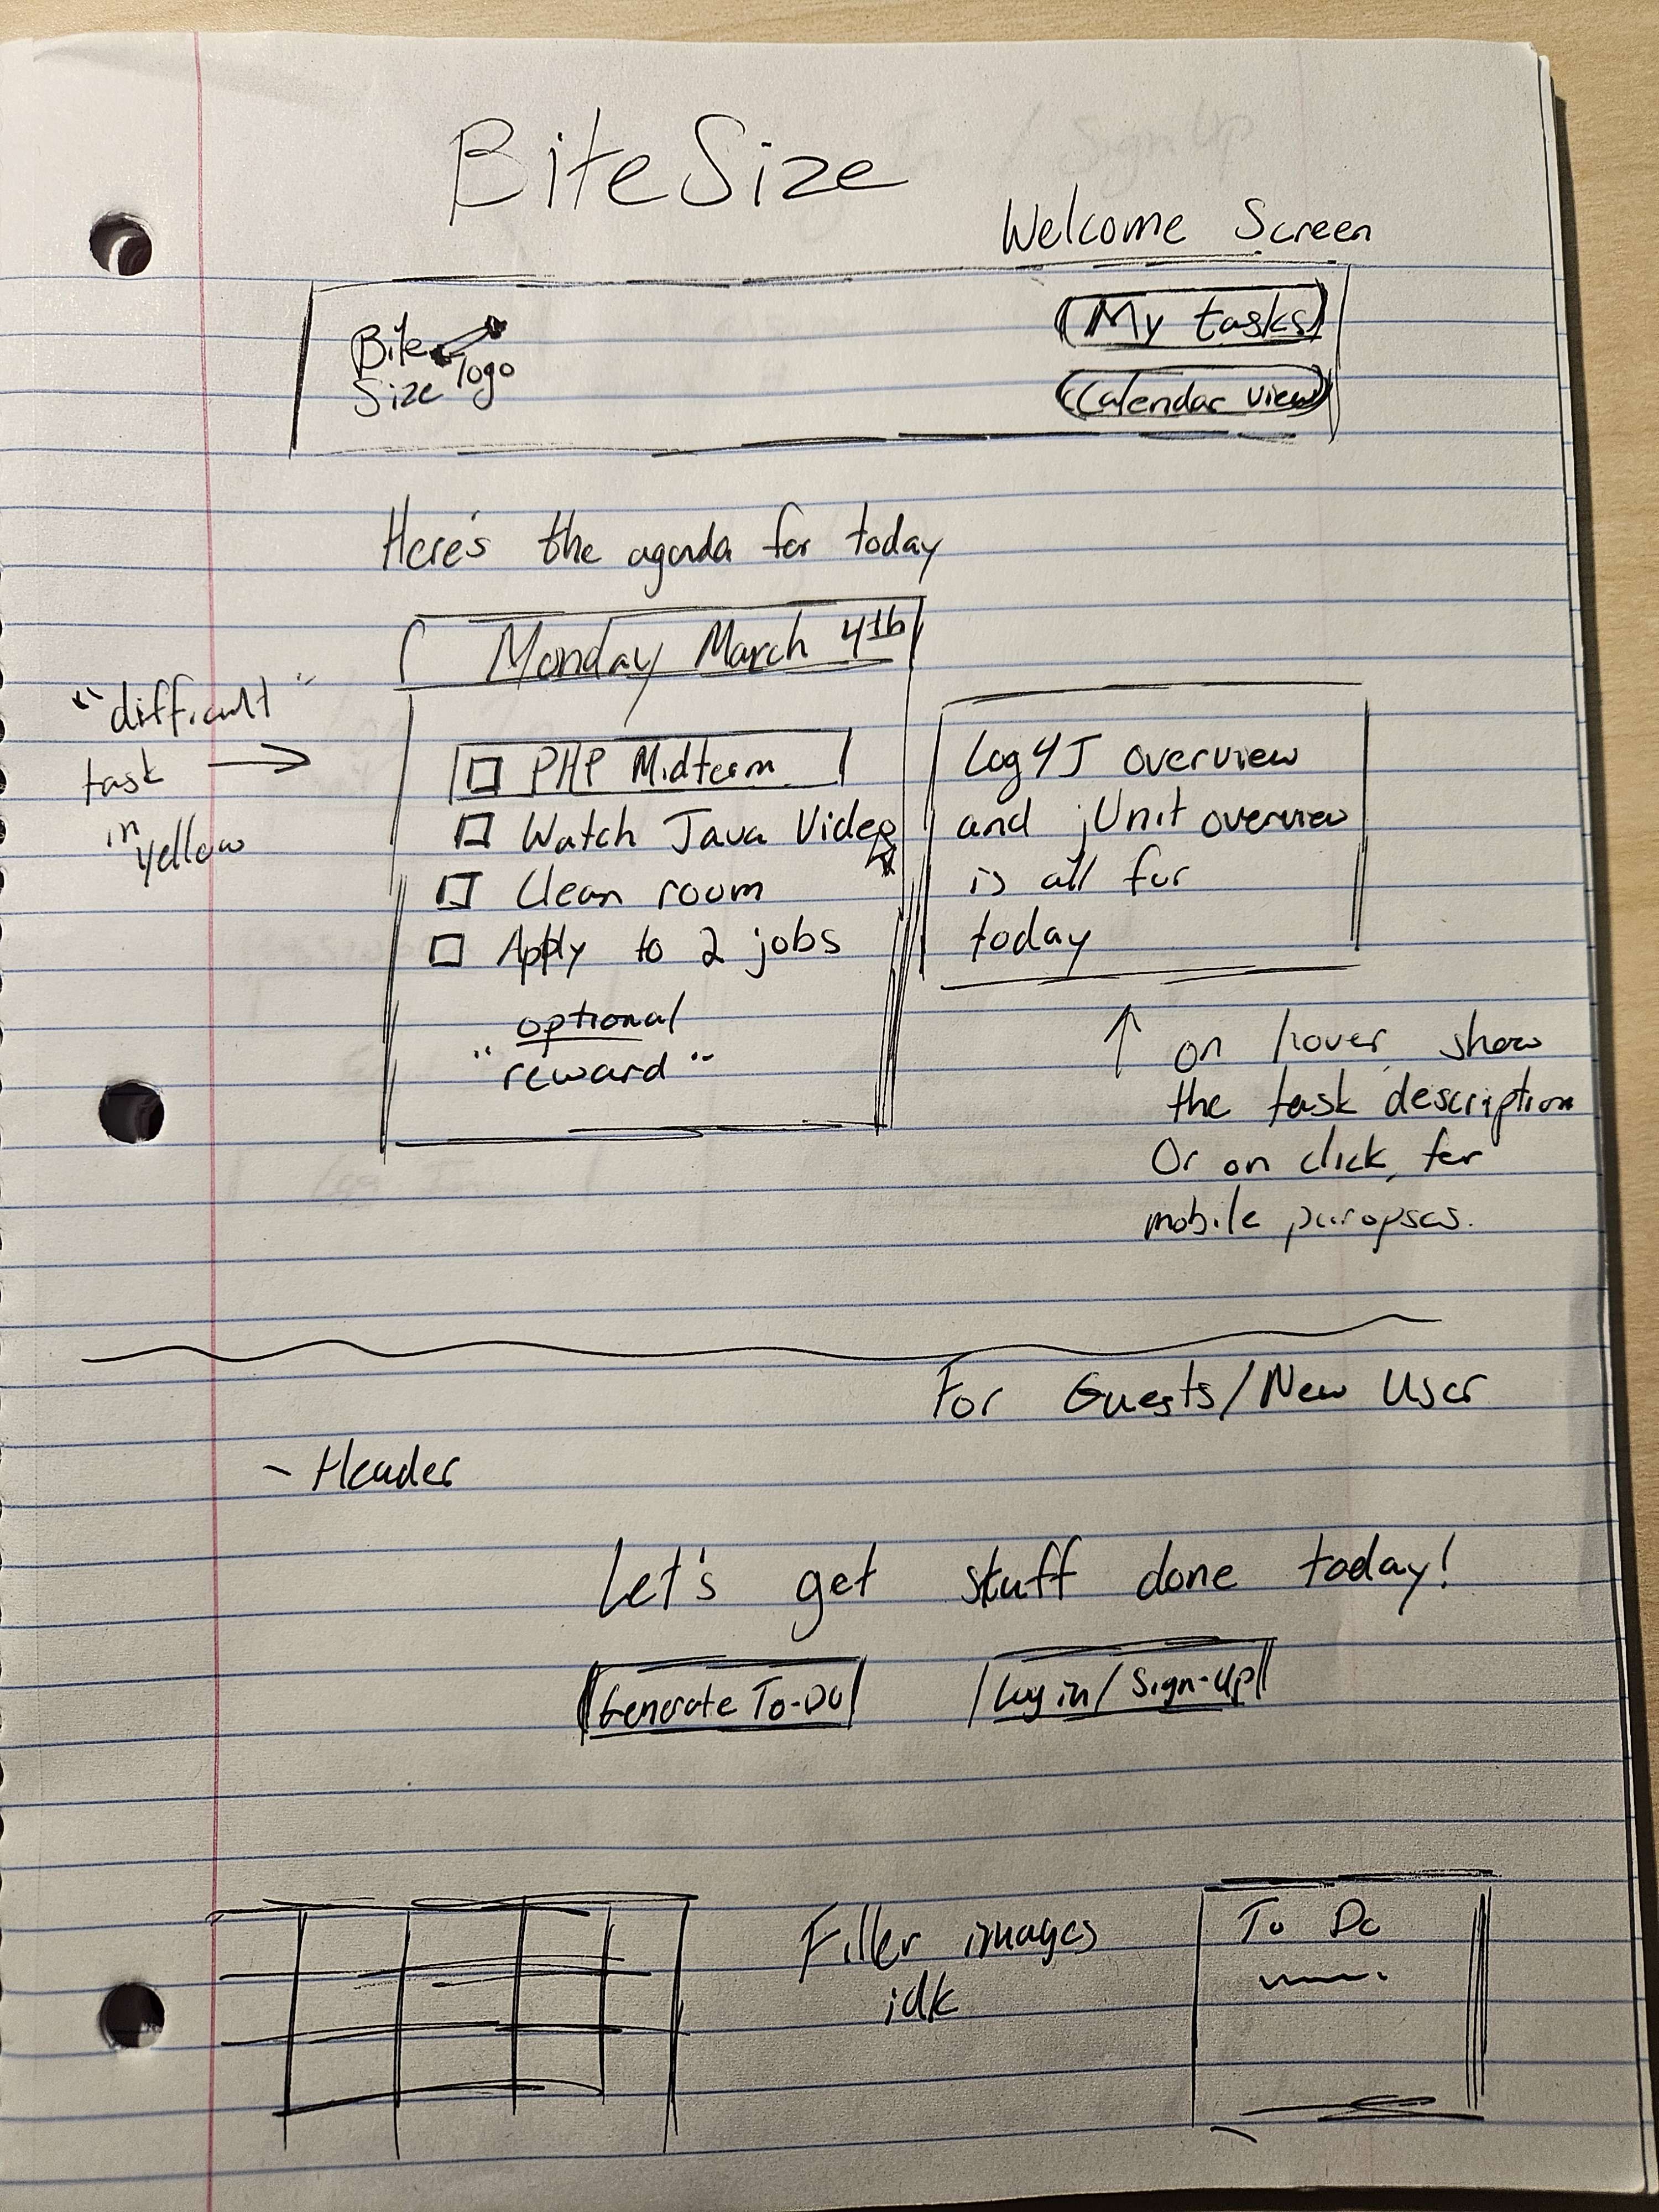 BiteSize
Welcome Screen
Bite
Size logo
My tasks
Calendar view
Here's the agenda for today
Monday March 4th
"difficult"
task
in
yellow
PHP Midterm
Watch Java Video
Clean room
Apply to 2 jobs
optional
"reward"
Log4J overview
and jUnit overview
is all for
today
on hover, show
the task description
Or on click, for
mobile puropses.
For Guests/New User
- Header
Let's get stuff done today!
Generate To-Do
Log in/Sign-Up
Filler images
idk
To Do